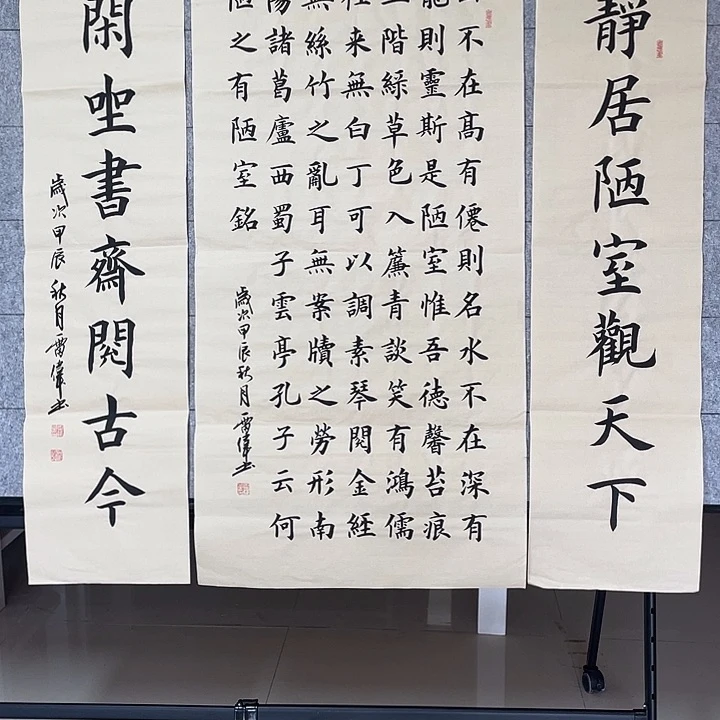 靜居陋室觀天下
不在髙有僊則名水不在深有
龍則靈斯是陋室惟吾徳馨苔痕
上階綠草色入簾青談笑有鴻儒
往来無白丁可以調素琴閱金經
無絲竹之亂耳無案牘之勞形南
陽諸葛廬西蜀子雲亭孔子云何
陋之有陋室銘
歲次甲辰秋月雷偉书
閑坐書齋閱古今
歲次甲辰秋月雷偉书